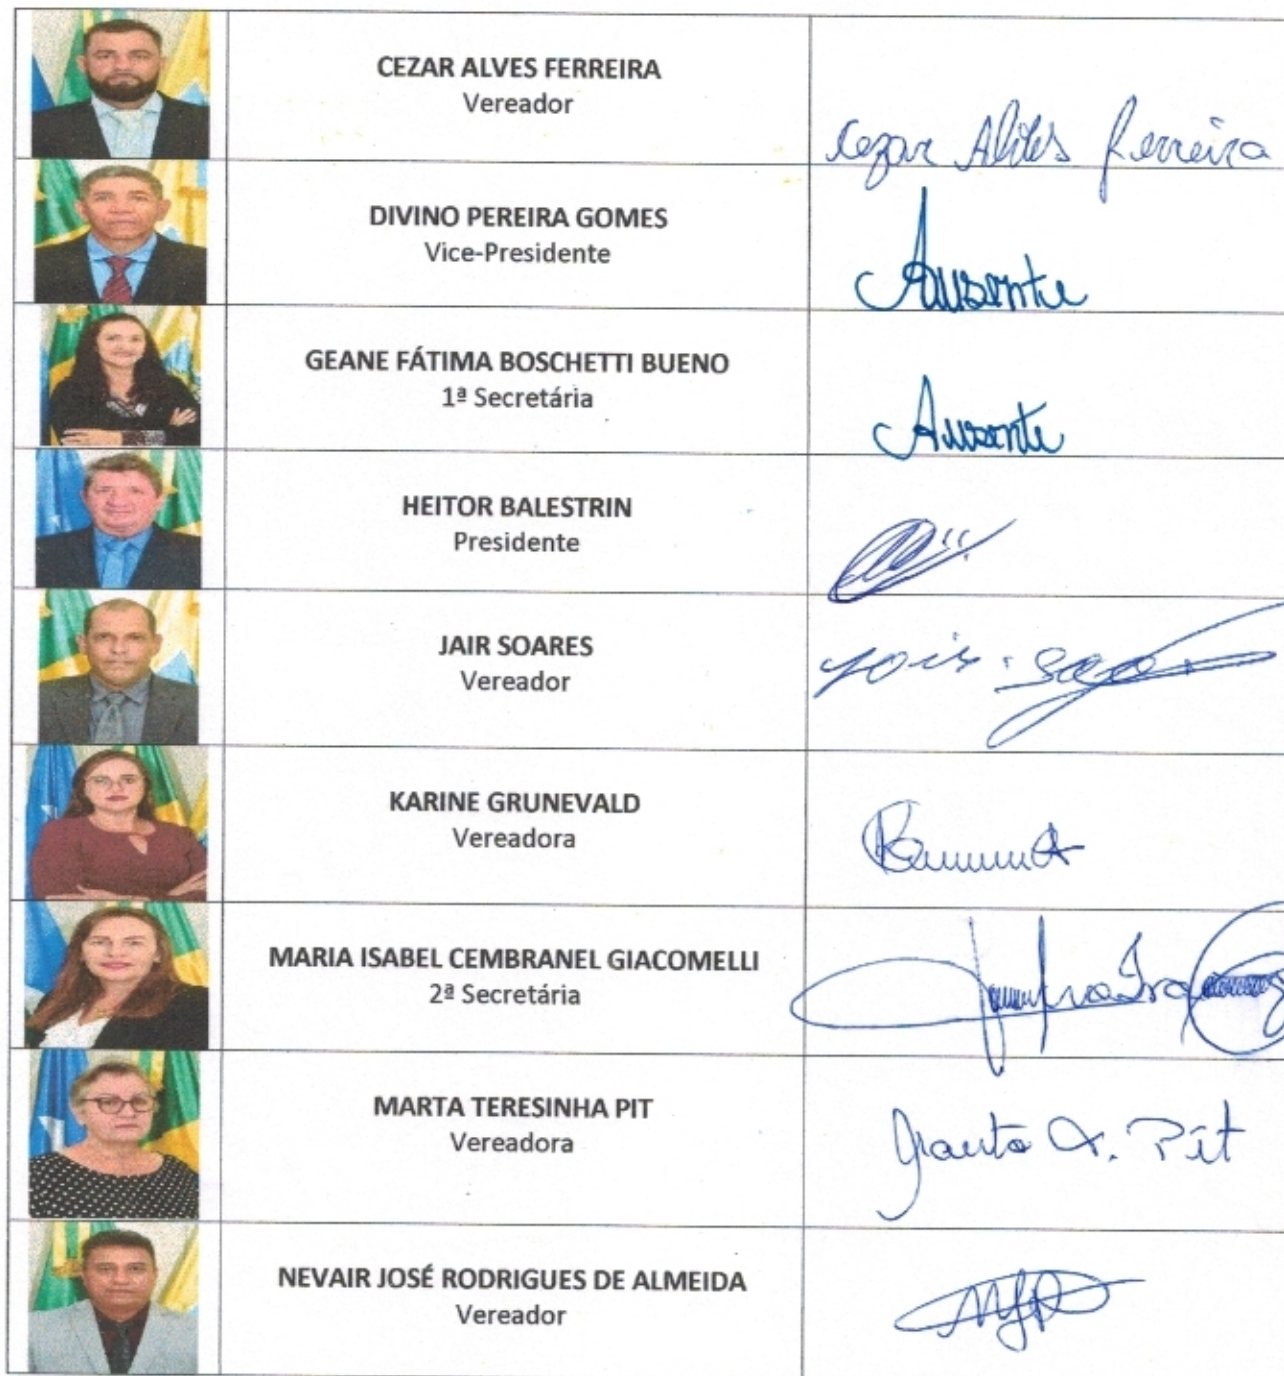 CEZAR ALVES FERREIRA
Vereador
Cezar Alves Ferreira
DIVINO PEREIRA GOMES
Vice-Presidente
Ausente
GEANE FÁTIMA BOSCHETTI BUENO
1ª Secretária
Ausente
HEITOR BALESTRIN
Presidente
JAIR SOARES
Vereador
KARINE GRUNEVALD
Vereadora
MARIA ISABEL CEMBRANEL GIACOMELLI
2ª Secretária
MARTA TERESINHA PIT
Vereadora
Marta T. Pit
NEVAIR JOSÉ RODRIGUES DE ALMEIDA
Vereador